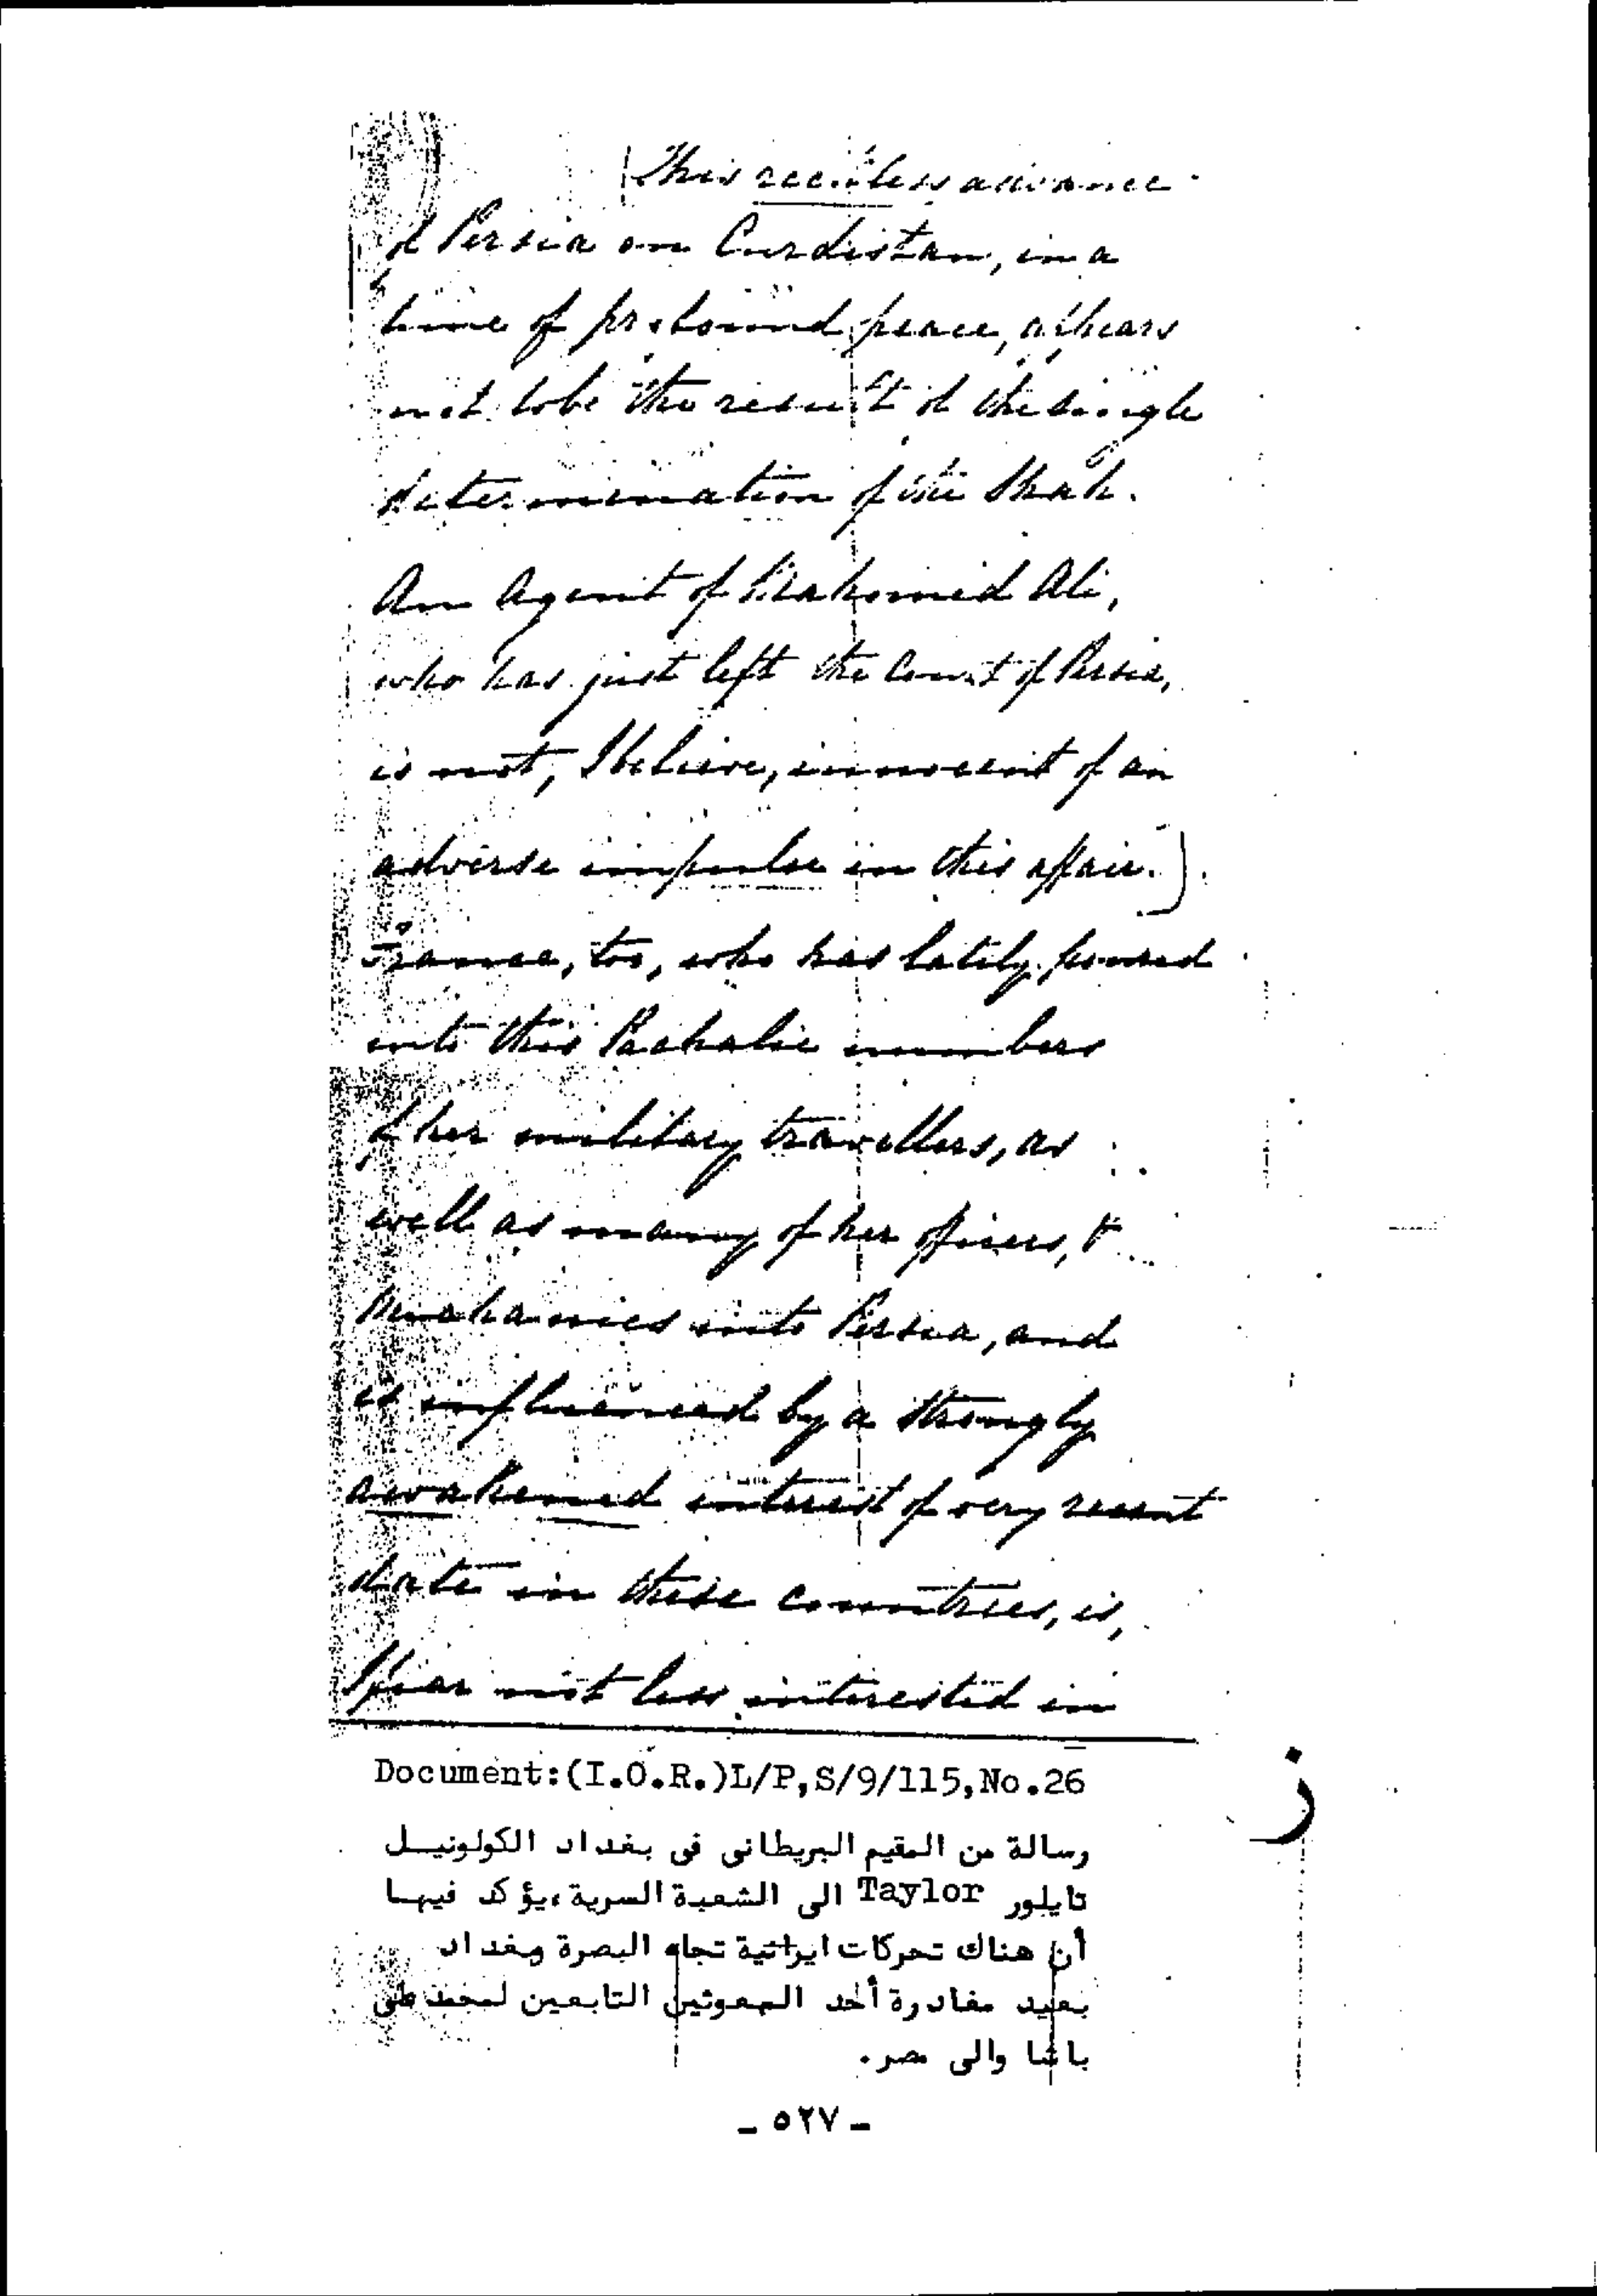 This reckless advance
of Persia on Curdistan, in a
time of profound peace, appears
not to be the result of the single
determination of the Shah.
An Agent of Mahomed Ali,
who has just left the Court of Persia,
is not, I believe, innocent of an
adverse impulse in this affair.]
France, too, who has lately poured
into this Pachalic numbers
of her military travellers, as
well as many of her officers, &
Mechanics into Persia, and
is influenced by a strongly
awakened interest of very recent
date in these countries, is,
I fear not less interested in
Document:(I.O.R.)L/P,S/9/115,No.26
ز
رسالة من المقيم البريطانى فى بغداد الكولونيل
تايلور Taylor الى الشعبة السرية، يؤكد فيها
أن هناك تحركات ايرانية تجاه البصرة وبغداد
بعيد مغادرة أحد المبعوثين التابعين لمحمد على
باشا والى مصر.
- ٥٢٧ -